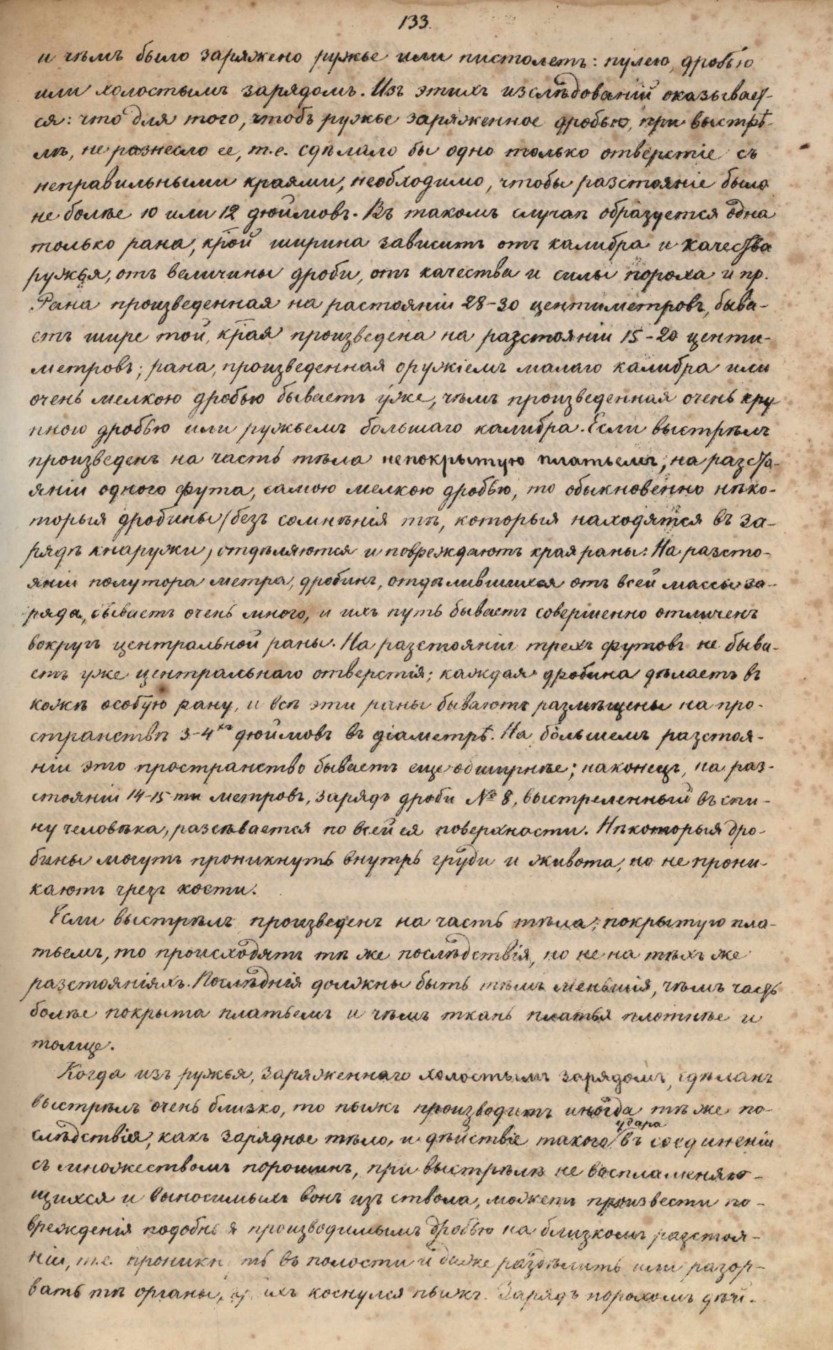 133.
и чѣмъ было заряжено ружье или пистолетъ: пулею, дробью
или холостымъ зарядомъ. Изъ этихъ изслѣдованій оказывает-
ся: что для того, чтобъ ружье заряженное дробью, при выстрѣ-
лѣ, не разнесло ее, т.е. сдѣлало бы одно только отверстіе съ
неправильными краями, необходимо, чтобы разстояніе было
не болѣе 10 или 12 дюймовъ. Въ такомъ случаѣ образуется одна
только рана, крой ширина зависитъ отъ калибра и качества
ружья, отъ величины дроби, отъ качества и силы пороха и пр.
Рана произведенная на растояніи 28-30 центиметровъ, быва-
етъ шире той, края произведена на разстояніи 15-20 центи-
метровъ; рана, произведенная оружіемъ малаго калибра или
очень мелкою дробью бываетъ уже, чѣмъ произведенная очень кру
пною дробью или ружьемъ большаго калибра. Если выстрѣлъ
произведенъ на часть тѣла непокрытую платьемъ, на разсто-
яніи одного фута, самою мелкою дробью, то обыкновенно нѣко-
торыя дробины (безъ сомнѣнія тѣ, которыя находятся въ за-
рядѣ кнаружи) отдѣляются и повреждаютъ края раны. На разсто-
яніи полутора метра, дробинъ, отдѣлившихся отъ всей массы за-
ряда, бываетъ очень много, и ихъ путь бываетъ совершенно отличенъ
вокругъ центральной раны. На разстояніи трехъ футовъ не быва-
етъ уже центральнаго отверстія; каждая дробина дѣлаетъ въ
кожѣ особую рану, и всѣ эти раны бываютъ размѣщены на про-
странствѣ 3-4хъ дюймовъ въ діаметрѣ. На большемъ разстоя-
ніи это пространство бываетъ еще обширнѣе; наконецъ, на раз-
стояніи 14-15-ти метровъ, зарядъ дроби № 8, выстреленный въ спи-
ну человѣка, разсѣвается по всей ея поверхности. Нѣкоторыя дро-
бины могутъ проникнуть внутрь груди и живота, но не прони-
каютъ чрезъ кости.
Если выстрѣлъ произведенъ на часть тѣла, покрытую пла-
тьемъ, то происходятъ тѣ же послѣдствія, но не на тѣхъ же
разстояніяхъ. Послѣднія должны быть тѣмъ меньшія, чѣмъ часть
болѣе покрыта платьемъ и чѣмъ ткань платья плотнѣе и
толще.
Когда изъ ружья, заряженнаго холостымъ зарядомъ, сдѣланъ
выстрѣлъ очень близко, то пыжъ производитъ иногда тѣ же по-
слѣдствія, какъ зарядное тѣло, и дѣйствіе такого удара въ соединеніи
съ множествомъ порошинъ, при выстрѣлѣ не воспламеняю-
щихся и выносимыхъ вонъ изъ ствола, можетъ произвести по-
врежденія подобныя производимымъ дробью на близкомъ разстоя-
ніи, т.е. проникнуть въ полости и даже разъѣлить или разор-
вать тѣ органы, ихъ коснулся пыжъ. Зарядъ порохомъ дѣй-